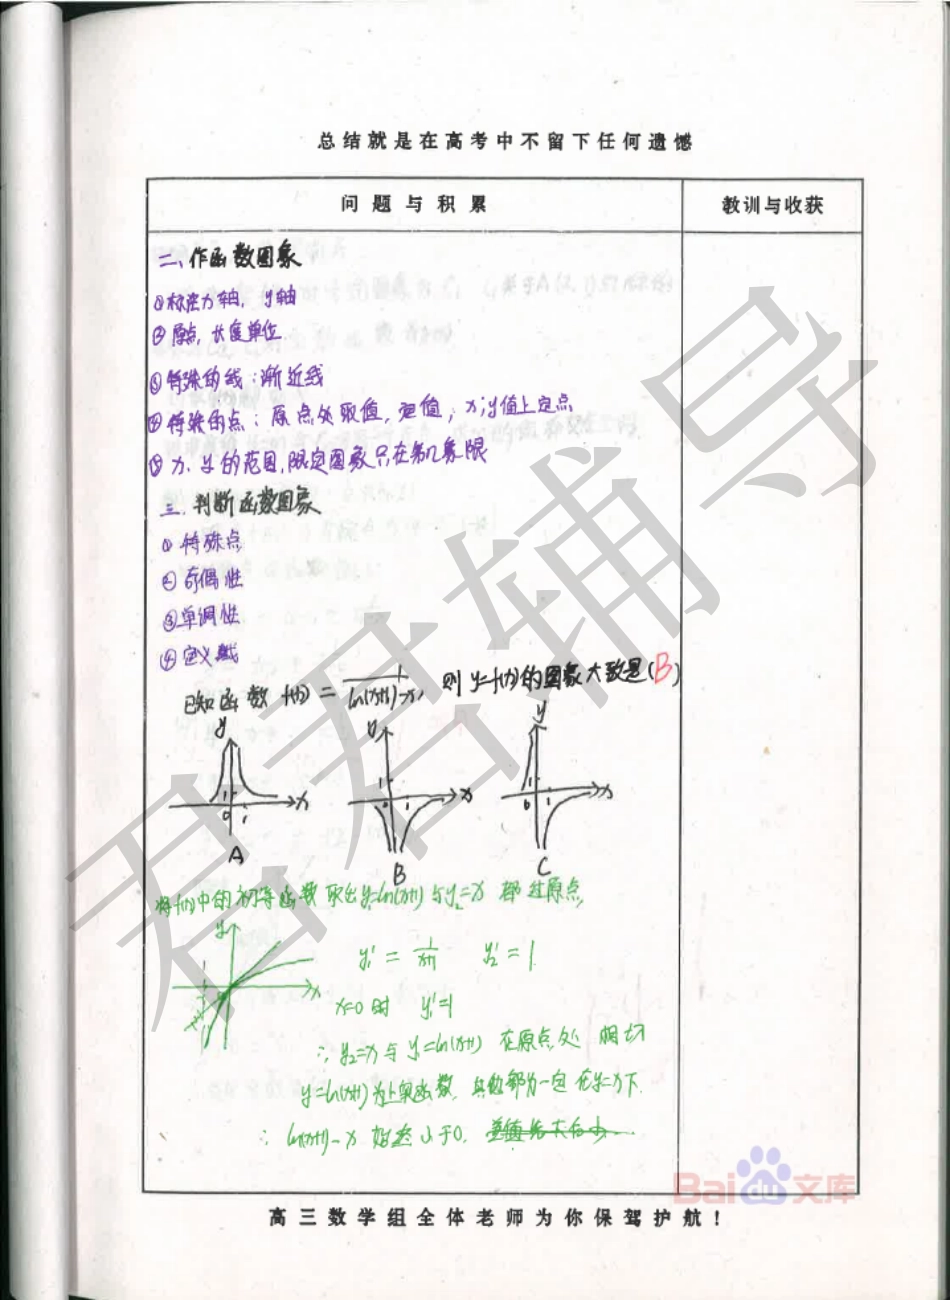 总结就是在高考中不留下任何遗憾
问题与积累 教训与收获
二、作函数图象
①标准x轴，y轴
②原点，长度单位
③特殊的线：渐近线
④特殊的点：原点处取值，定值，x，y值上定点
⑤x、y的范围，限定图象只在第几象限
三、判断函数图象
①特殊点
②奇偶性
③单调性
④定义域
已知函数f(x)=1/(ln(x+1)-x)，则y=f(x)的图象大致是(B)
y y y
1 1 1
0 1 x 0 1 x 0 1 x
A B C
将f(x)中的初等函数取出y₁=ln(x+1)与y₂=x都过原点
y
x
y₁'=1/(x+1) y₂'=1
x=0时 y₁'=1
∴y₂=x与y₁=ln(x+1)在原点处相切
y=ln(x+1)为上凸函数，其他部分一定在y=x下
∴ln(x+1)-x始终小于0，差值先大后小
君君辅导
Baidu文库
高三数学组全体老师为你保驾护航！